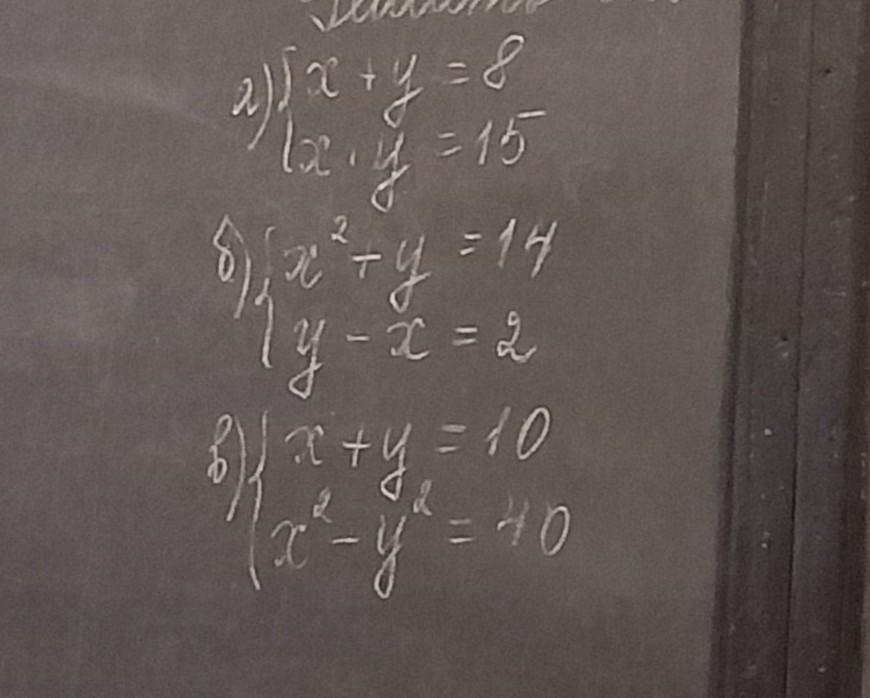 а) { x + y = 8
x · y = 15
б) { x² + y = 14
y - x = 2
в) { x + y = 10
x² - y² = 40